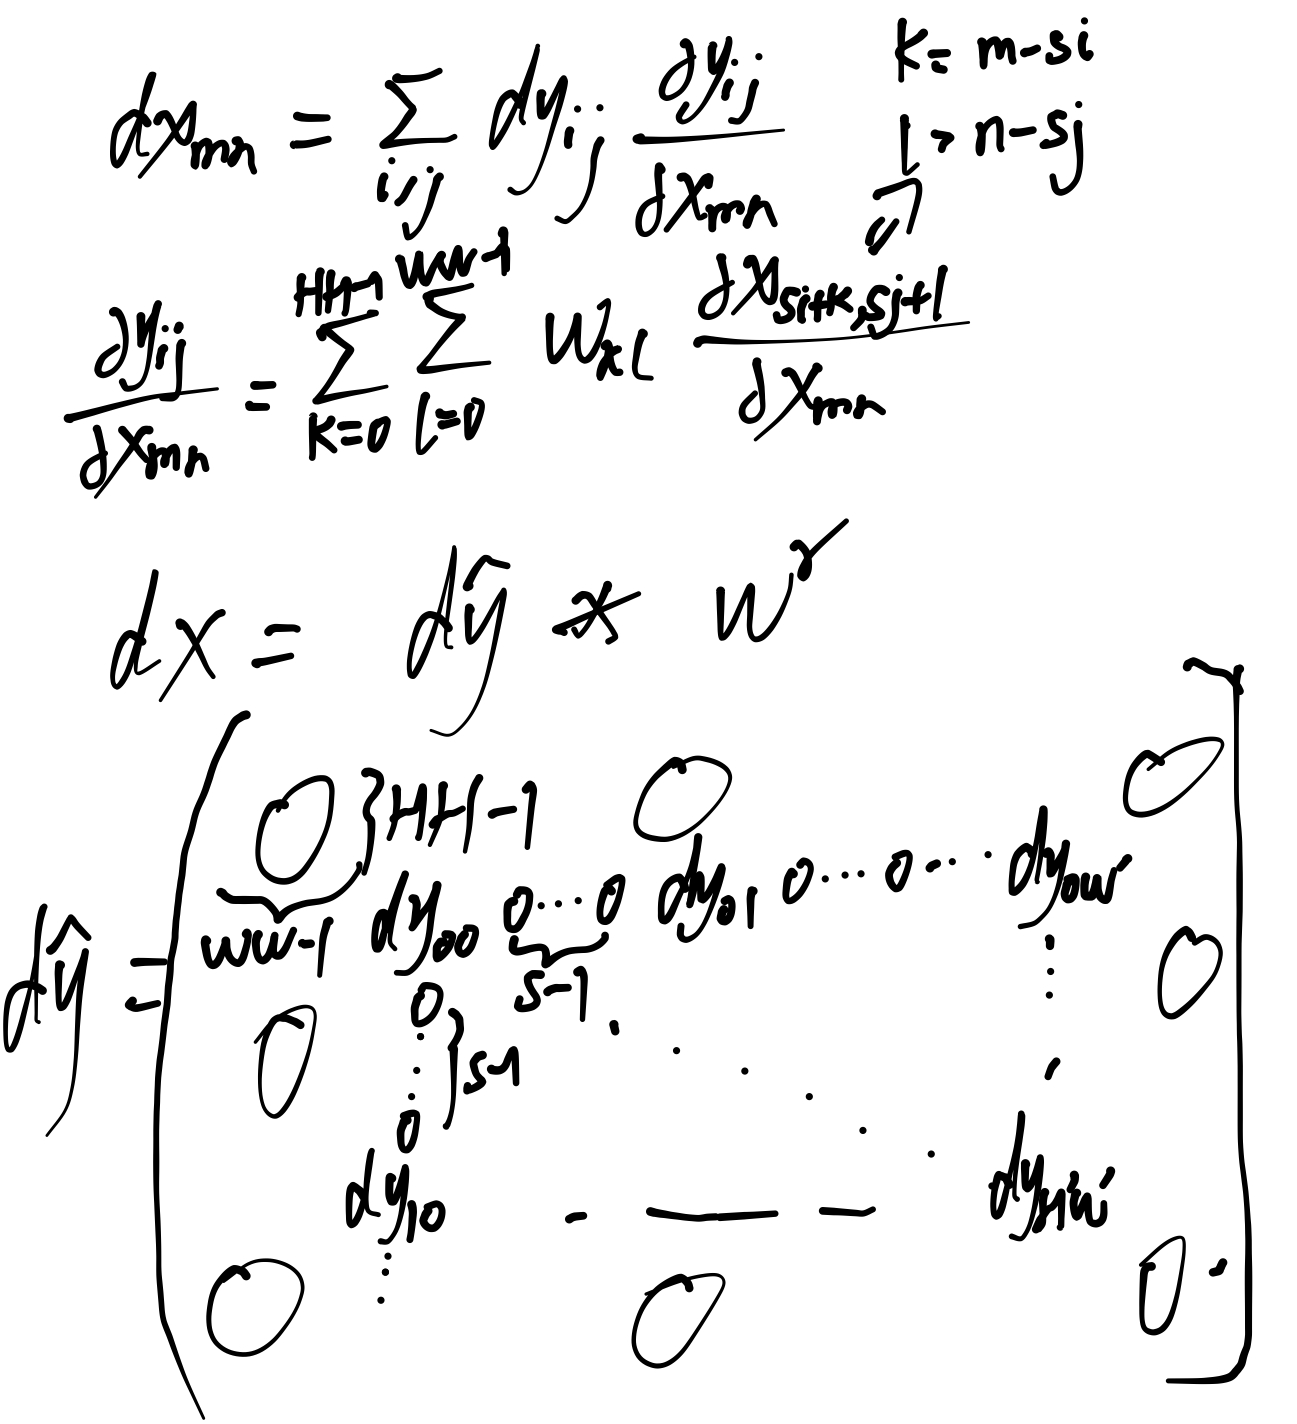 dx_{mn} = Σ_{i,j} dy_{ij} ∂y_{ij}/∂x_{mn}
k = m-si
l > n-sj
∂y_{ij}/∂x_{mn} = Σ_{k=0}^{HH-1} Σ_{l=0}^{WW-1} w_{kl} ∂x_{si+k,sj+l}/∂x_{mn}
dx = dŷ * w^r
0 } HH-1 0 0
dŷ = WW-1 dy_{00} 0...0 dy_{01} 0...0... dy_{0W'}
s-1
0 0 } s-1 0
0
dy_{10} . — — — dy_{H'W'}
0 0 0